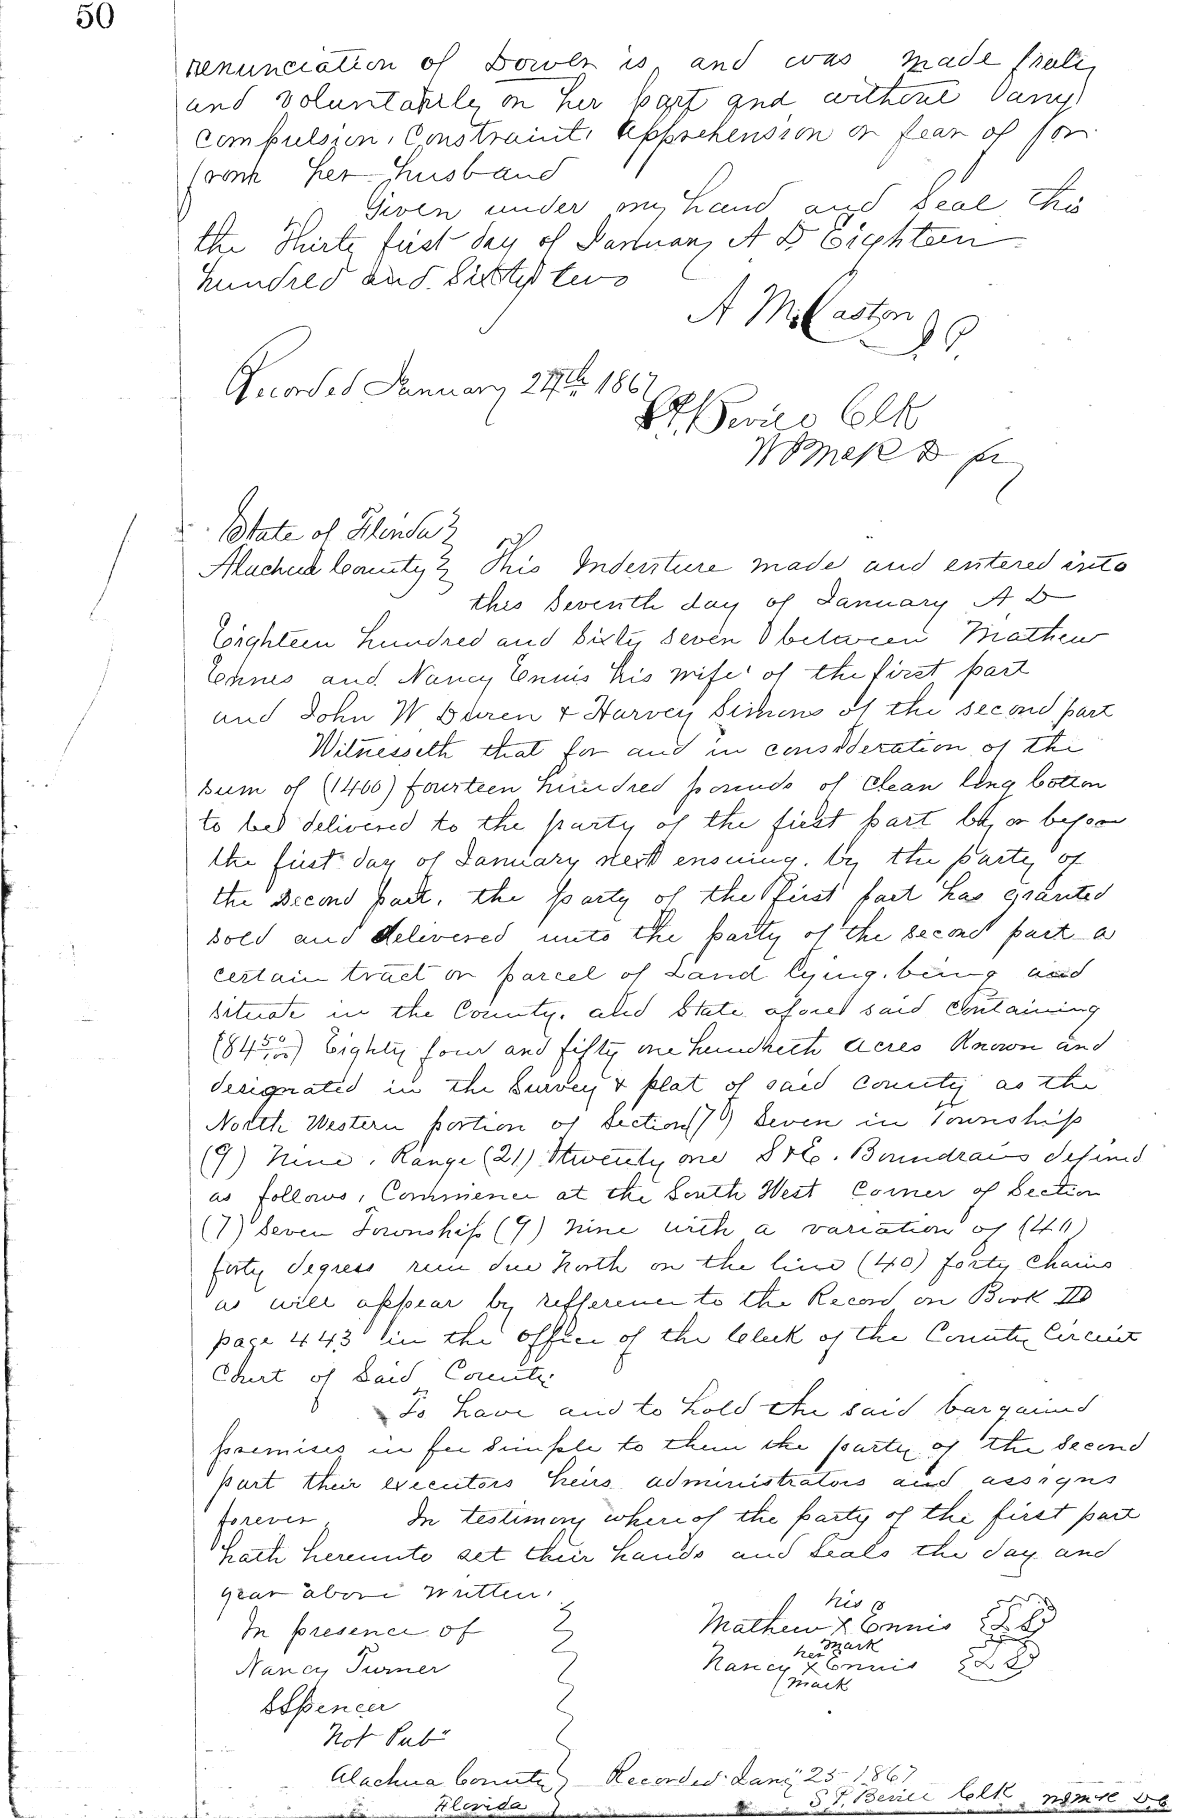 50
renunciation of Dower is, and was made freely
and voluntarily on her part and without any
compulsion, Constraint, apprehension or fear of or
from her husband
Given under my hand and Seal this
the Thirty first day of January A D Eighteen
hundred and Sixty two
A McCaston J P.
Recorded January 24th 1867
Clk
State of Florida }
Alachua County } This Indenture made and entered into
this Seventh day of January A D
Eighteen hundred and Sixty Seven between Mathew
Ennes and Nancy Ennis his wife of the first part
and John W Duren & Harvey Simons of the second part
Witnesseth that for and in consideration of the
sum of (1400) fourteen hundred pounds of clean ling Cotton
to bed delivered to the party of the first part by or before
the first day of January next ensuing. by the party of
the Second part. the party of the first part has granted
sold and delivered unto the party of the second part a
certain tract or parcel of Land lying, being and
situate in the County, and State afore said Containing
(84 50/100) Eighty four and fifty one hundreth acres Known and
designated in the Survey & plat of said county as the
North Western portion of Section (7) Seven in Township
(9) Nine, Range (21) twenty one S & E. Boundrais defined
as follows, Commence at the South West Corner of Section
(7) Seven Township (9) nine with a variation of (40)
forty degress run due North on the line (40) forty chains
as will appear by refference to the Record on Book
page 443 in the office of the Clerk of the County Circuit
Court of Said County.
To have and to hold the said bargained
premises in fee Simple to them the party of the Second
part their executors heirs administrators and assigns
forever. In testimony whereof the party of the first part
hath hereunto set their hands and Seals the day and
year above written.
In presence of his
Nancy Turner Mathew X Ennis L S
mark
her
Nancy X Ennis L S
mark
S Spencer
Not Pub
Alachua County Recorded Jany 25 1867
Florida S F. Clk